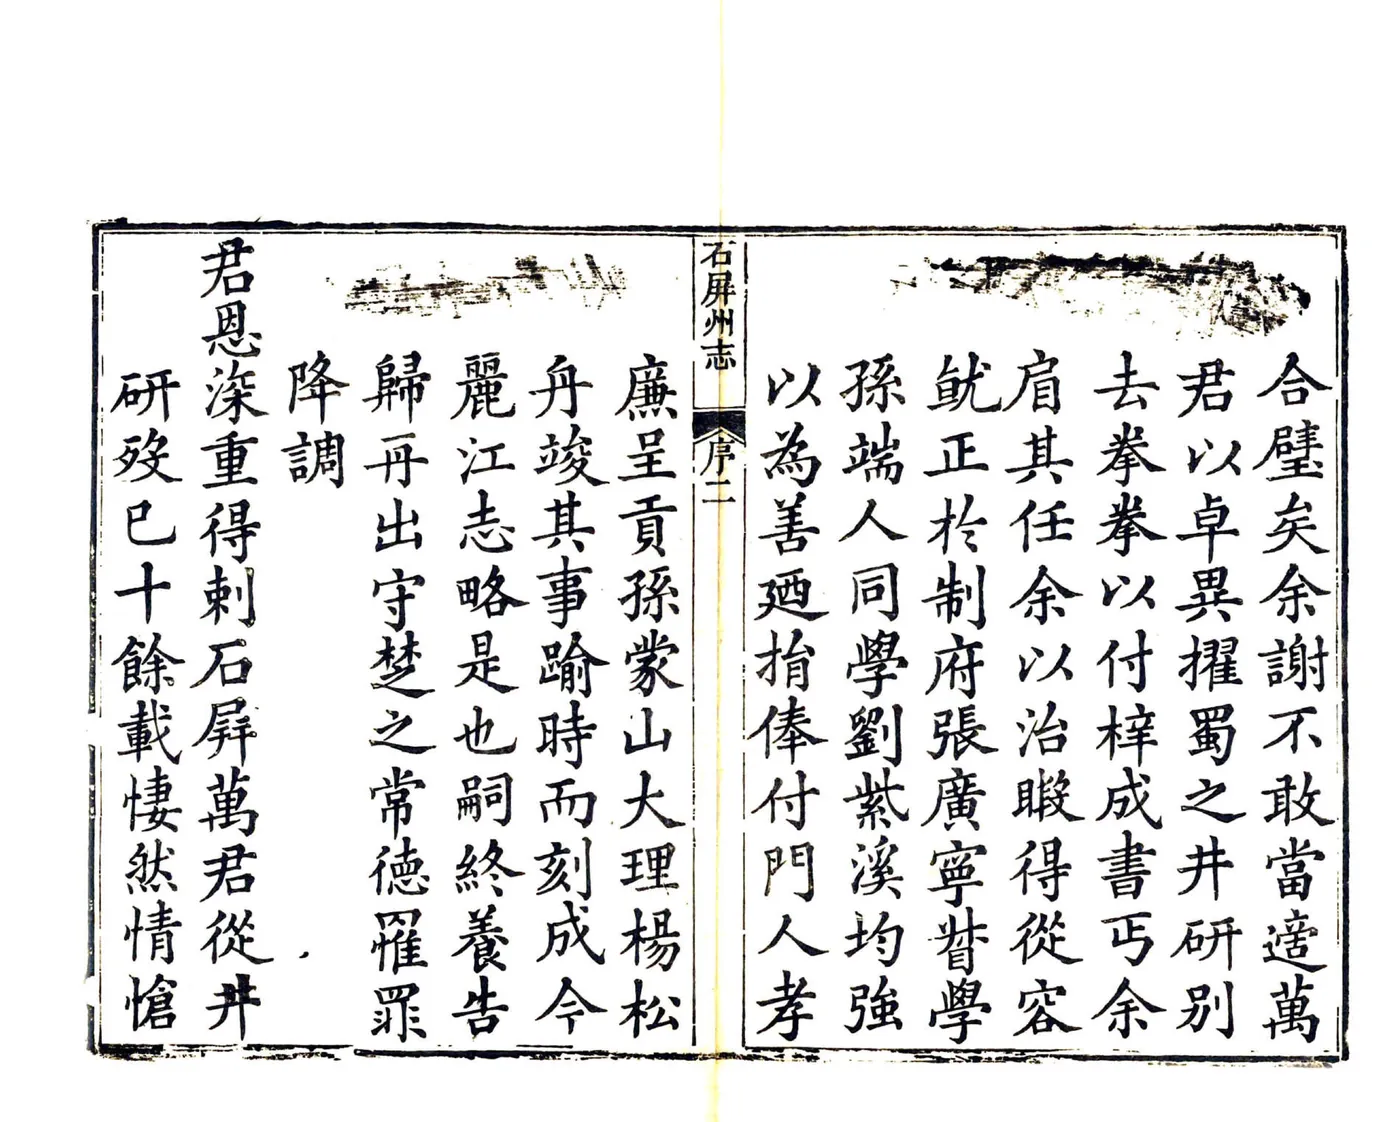 合璧矣余謝不敢當適萬
君以卓異擢蜀之井研別
去拳拳以付梓成書丐余
肩其任余以治暇得從容
就正於制府張廣寧督學
孫端人同學劉紫溪均強
以為善廼捐俸付門人孝
石屏州志
序二
廉呈貢孫蒙山大理楊松
舟竣其事踰時而刻成今
麗江志略是也嗣終養告
歸再出守楚之常德罹罪
降調
君恩深重得刺石屏萬君從井
研歿已十餘載悽然情愴